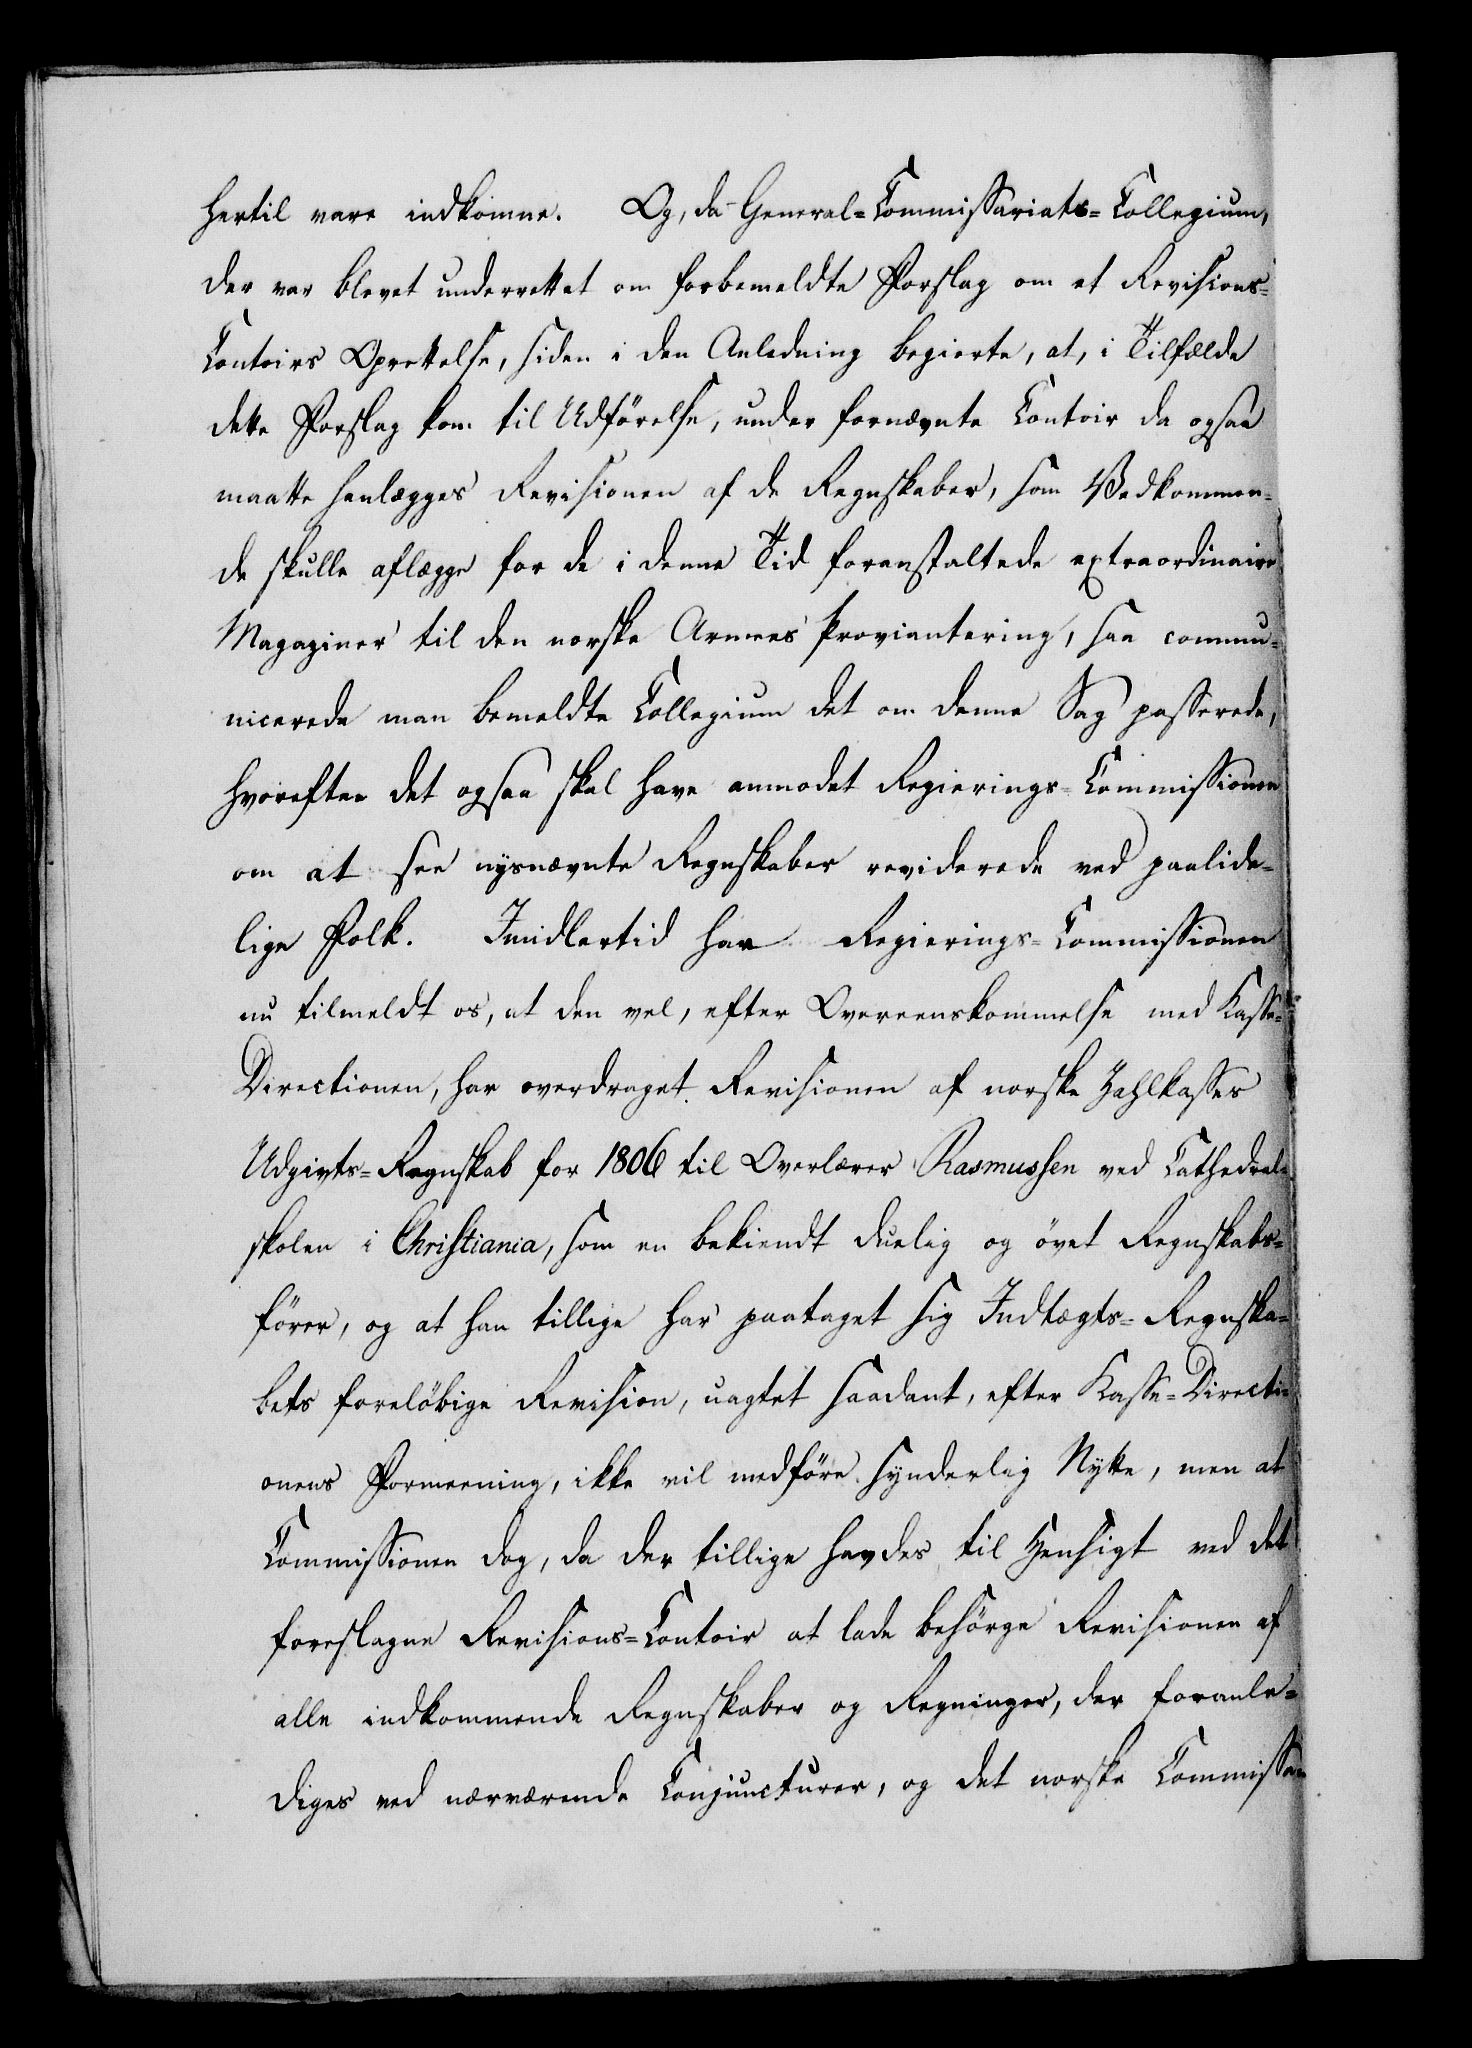 hertil vare indkomne. Og, da General=Commissariats=Collegium,
der var blevet underrettet om forbemeldte Forslag om et Revisions=
Contoirs Oprettelse, siden i den Anledning begierte, at, i Tilfælde
dette Forslag kom til Udförelse, under fornævnte Contoir da ogsaa
maatte henlægges Revisionen af de Regnskaber, som Vedkommen=
de skulle aflægge for de i denne Tid foranstaltede extraordinaire
Magaziner til den norske Armees Proviantering, saa commu=
nicerede man bemeldte Collegium det om denne Sag passerede,
hvorefter det ogsaa skal have anmodet Regierings=Commissionen
om at see nysnævnte Regnskaber reviderede ved paalide=
lige Folk. Imidlertid har Regierings=Commissionen
nu tilmeldt os, at den vel, efter Overeenskommelse med Kasse=
Directionen, har overdraget Revisionen af norske Zahlkasses
Udgivts=Regnskab for 1806 til Overlærer Rasmussen ved Cathedral=
skolen i Christiania, som en bekiendt duelig og övet Regnskabs=
förer, og at han tillige har paataget sig Indtægts=Regnska=
bets foreløbige Revision, uagtet saadant, efter Kasse=Directi=
onens Formeening, ikke vil medföre synderlig Nytte, men at
Commissionen dog, da der tillige havdes til Hensigt ved det
foreslagne Revisions=Contoir at lade besörge Revisionen af
alle indkommende Regnskaber og Regninger, der foranle=
diges ved nærværende Conjuncturer, og det norske Commissa=